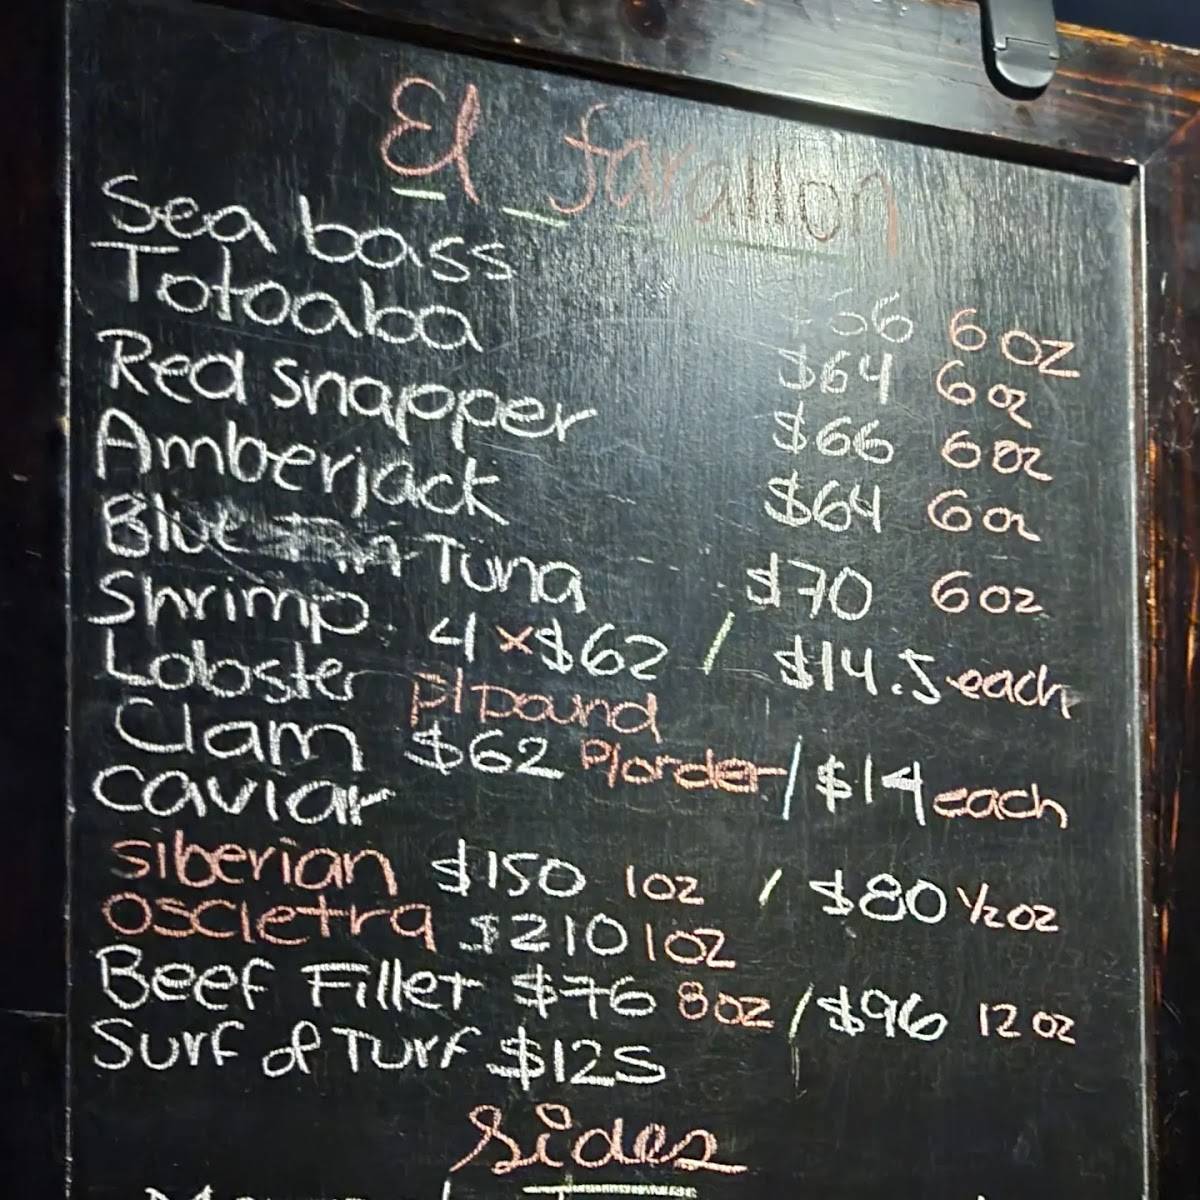 El farallon
Sea bass $56 6 oz
Totoaba $64 6 oz
Red snapper $66 6 oz
Amberjack $64 6 oz
Blue Fin Tuna $70 6 oz
Shrimp 4 x $62 / $14.5 each
Lobster p/pound
Clam $62 P/order / $14 each
caviar
siberian $150 1oz / $80 1/2 oz
oscietra $210 1oz
Beef Fillet $76 8oz / $96 12 oz
Surf & Turf $125
Sides